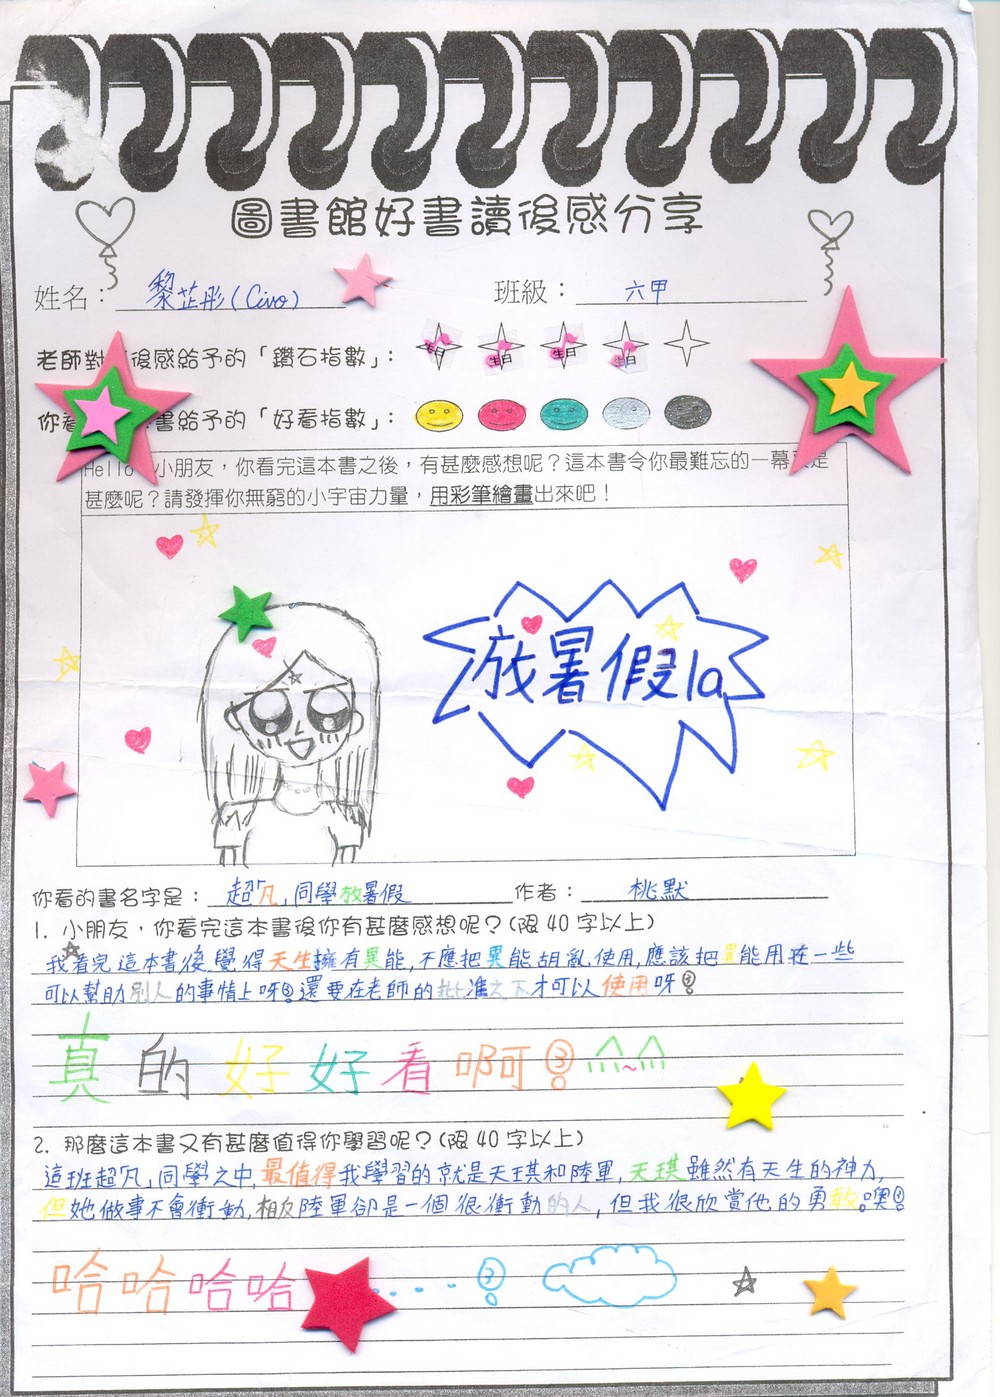 圖書館好書讀後感分享
姓名：黎芷彤(Civo)
班級：六甲
老師對 後感給予的「鑽石指數」：
你看 書給予的「好看指數」：
Hello 小朋友，你看完這本書之後，有甚麼感想呢？這本書令你最難忘的一幕 是
甚麼呢？請發揮你無窮的小宇宙力量，用彩筆繪畫出來吧！
放暑假la
你看的書名字是：超凡同學放暑假
作者：桃默
1. 小朋友，你看完這本書後你有甚麼感想呢？(限40字以上)
我看完這本書後,覺得天生擁有異能,不應把異能胡亂使用,應該把異能用在一些
可以幫助別人的事情上呀!還要在老師的批准之下才可以使用呀!
真的好好看啊!
2. 那麼這本書又有甚麼值得你學習呢？(限40字以上)
這班超凡同學之中,最值得我學習的就是天琪和陸軍,天琪雖然有天生的神力,
但她做事不會衝動,相反陸軍卻是一個很衝動的人,但我很欣賞他的勇敢。噢!
哈哈哈哈